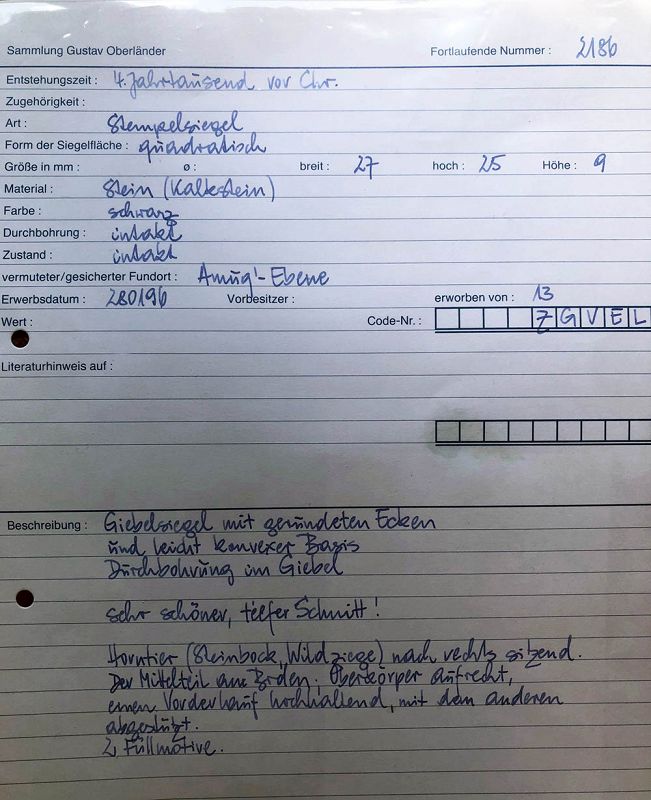 Sammlung Gustav Oberländer Fortlaufende Nummer : 2186
Entstehungszeit : 4. Jahrtausend vor Chr.
Zugehörigkeit :
Art : Stempelsiegel
Form der Siegelfläche : quadratisch
Größe in mm : ø : breit : 27 hoch : 25 Höhe : 9
Material : Stein (Kalkstein)
Farbe : schwarz
Durchbohrung : intakt
Zustand : intakt
vermuteter/gesicherter Fundort : Amuq'-Ebene
Erwerbsdatum : 280196 Vorbesitzer : erworben von : 13
Wert : Code-Nr. : ZGVEL
Literaturhinweis auf :
Beschreibung : Giebelsiegel mit gerundeten Ecken
und leicht konvexer Basis
Durchbohrung im Giebel
sehr schöner, tiefer Schnitt !
Horntier (Steinbock, Wildziege) nach rechts sitzend.
Der Mittelteil am Boden, Oberkörper aufrecht,
einen Vorderhauf hochhaltend, mit dem anderen
abgestützt.
2 Füllmotive.